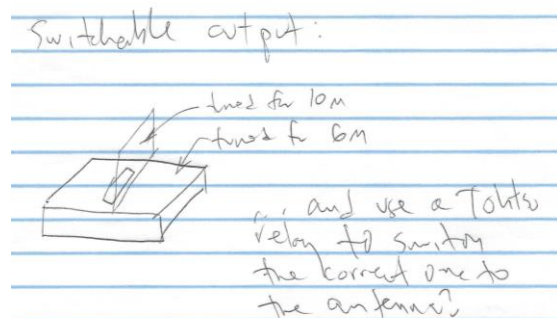 Switchable output:
tuned for 10m
tuned for 6m
... and use a Tohtsu
relay to switch
the correct one to
the antenna?